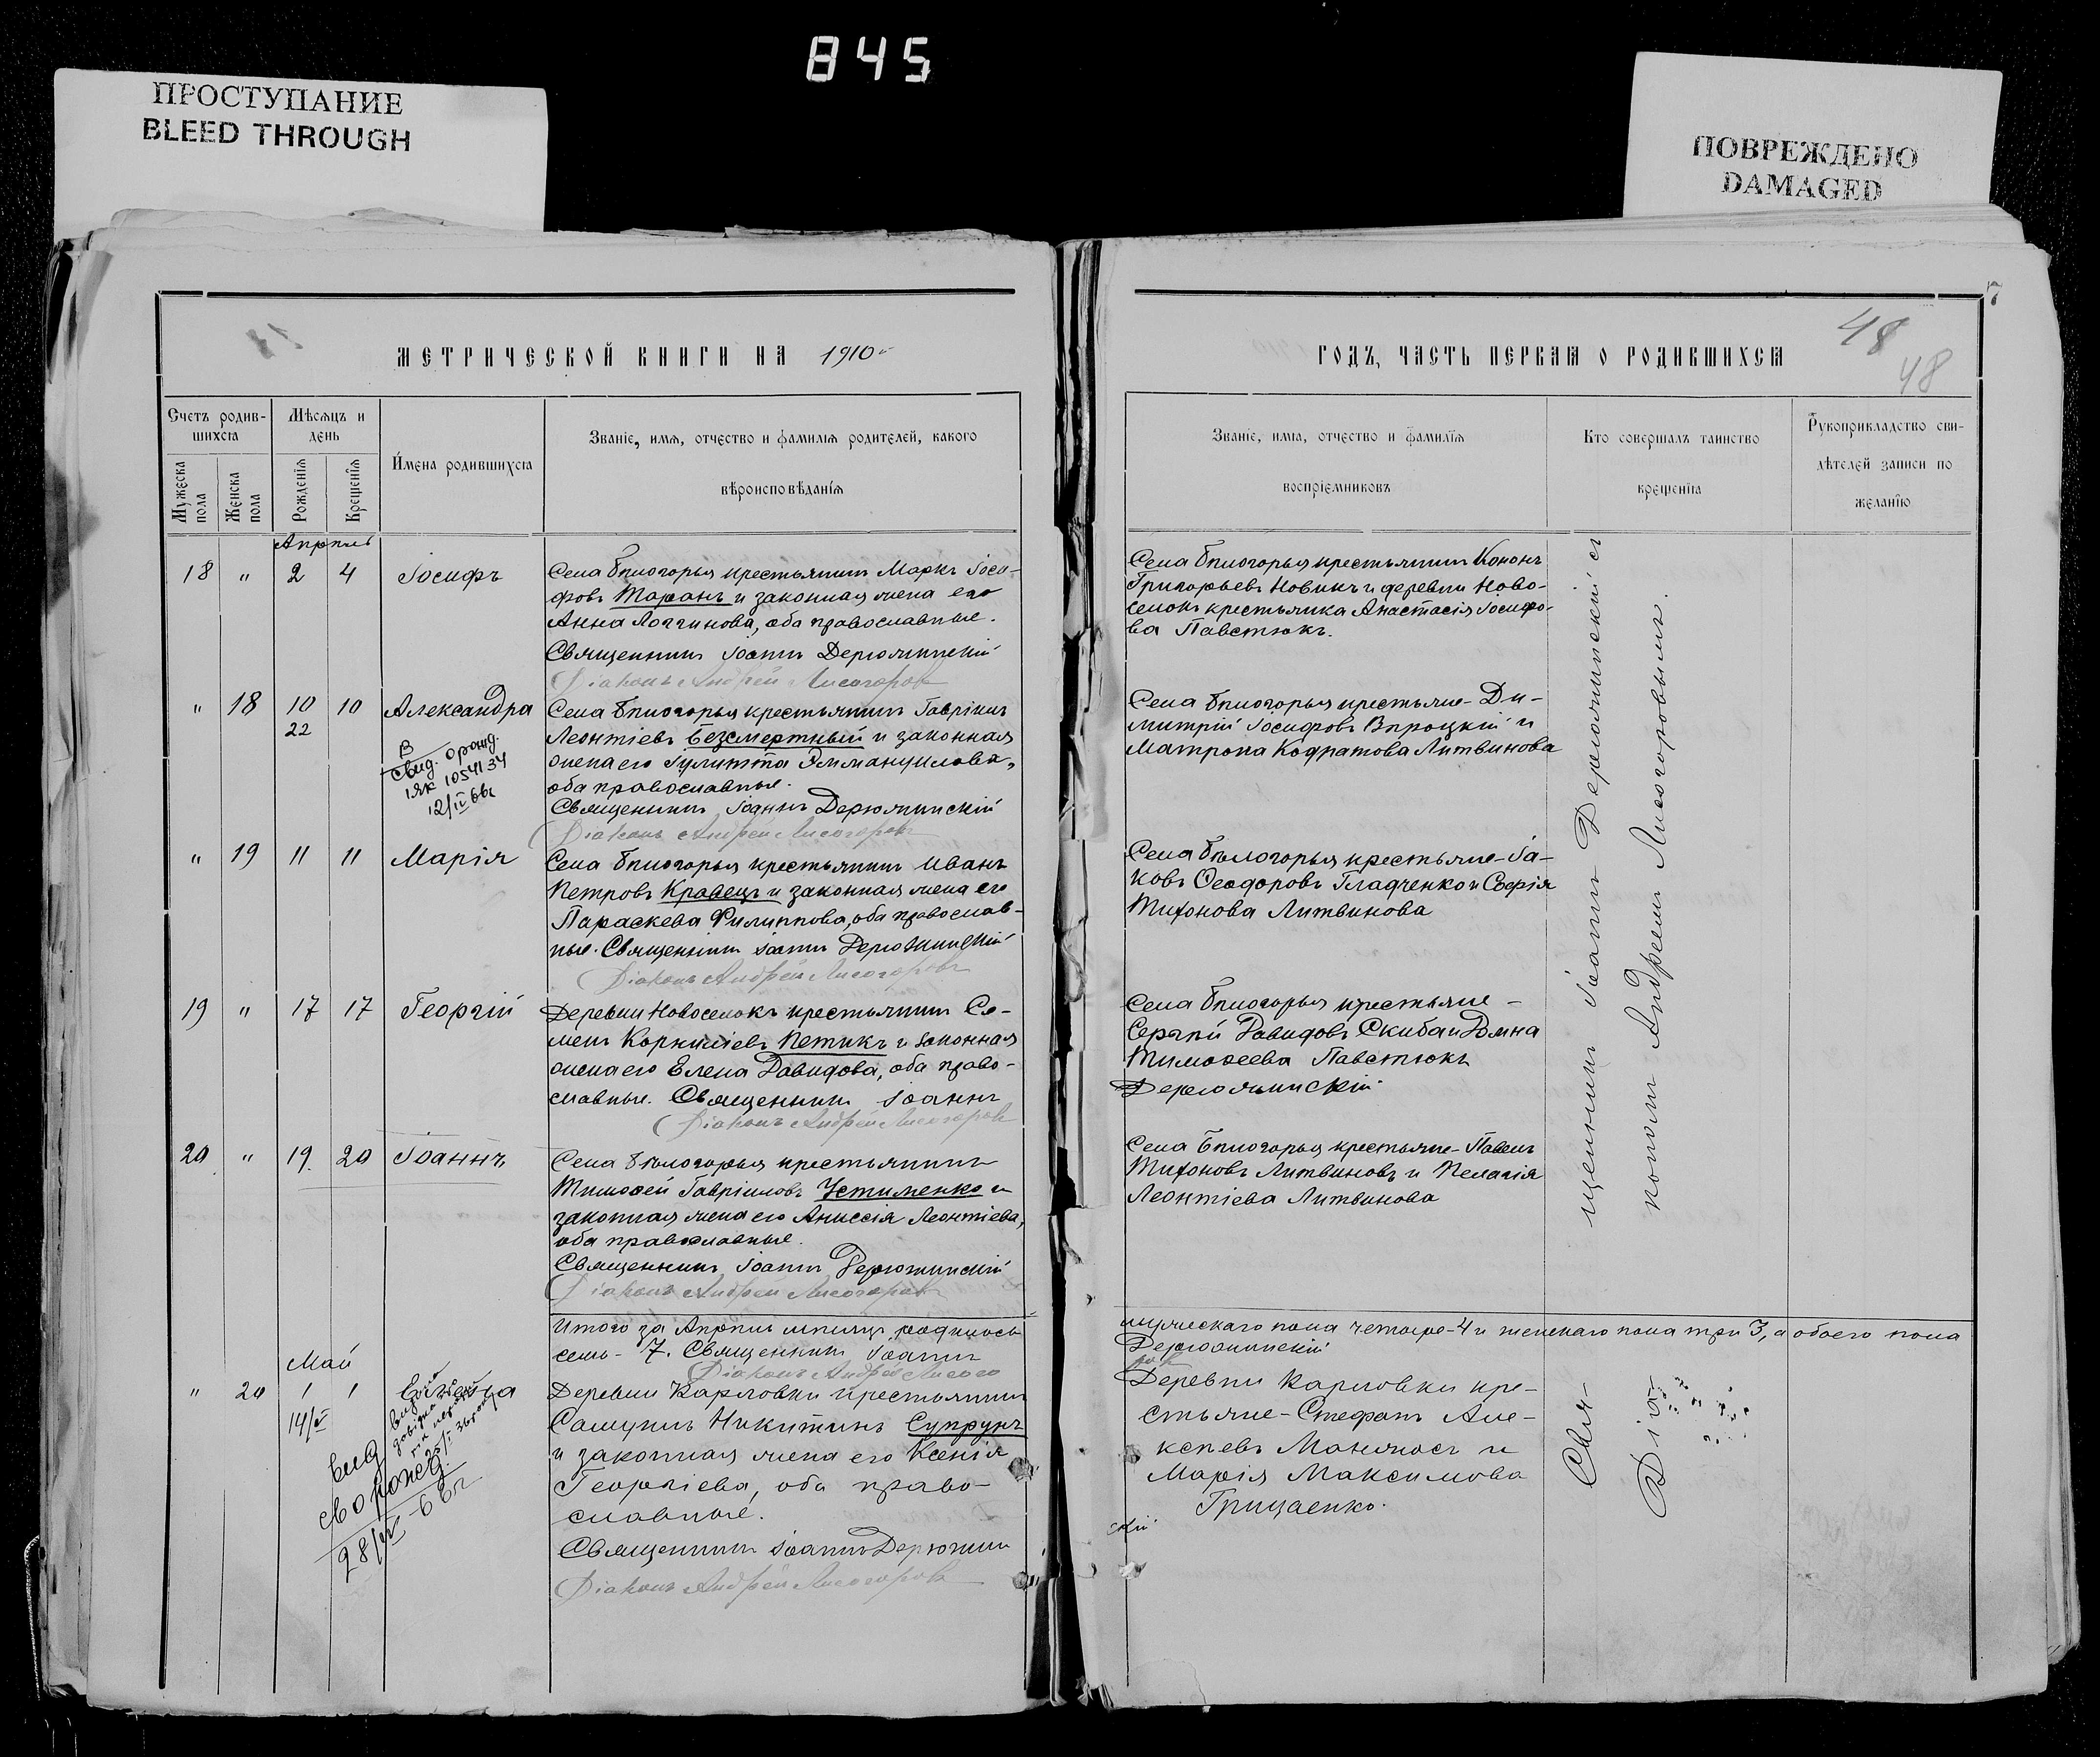 845
ПРОСТУПАНИЕ
BLEED THROUGH
ПОВРЕЖДЕНО
DAMAGED
МЕТРИЧЕСКОЙ КНИГИ НА 1910
Счетъ родив-
шихся
Мужеска пола
Женска пола
Мѣсяцъ и
день
Рожденія
Крещенія
Имена родившихся
Званіе, имя, отчество и фамилія родителей, какого
вѣроисповѣданія
Апрѣль
18 " 2 4 Іосифъ
Села Бѣлогорья крестьянинъ Маркъ Іоси-
фовъ Таранъ и законная жена его
Анна Логгинова, оба православные.
Священникъ Іоаннъ Дерюжинскій
Діаконъ Андрей Лисогоровъ
" 18 10 10 Александра
22
В
Свид. о рожд.
1ЯК 1054134
12/IV 66г
Села Бѣлогорья крестьянинъ Гавріилъ
Леонтіевъ Безсмертный и законная
жена его Іулитта Эммануилова,
оба православные.
Священникъ Іоаннъ Дерюжинскій
Діаконъ Андрей Лисогоровъ
" 19 11 11 Марія
Села Бѣлогорья крестьянинъ Иванъ
Петровъ Кравецъ и законная жена его
Параскева Филиппова, оба православ-
ные. Священникъ Іоаннъ Дерюжинскій
Діаконъ Андрей Лисогоровъ
19 " 17 17 Георгій
Деревни Новоселокъ крестьянинъ Се-
менъ Корниліевъ Петикъ и законная
жена его Елена Давидова, оба право-
славные. Священникъ Іоаннъ
Діаконъ Андрей Лисогоровъ
20 " 19 20 Іоаннъ
Села Бѣлогорья крестьянинъ
Тимоѳей Гавріиловъ Устименко и
законная жена его Анисія Леонтіева,
оба православные.
Священникъ Іоаннъ Дерюжинскій
Діаконъ Андрей Лисогоровъ
Итого за Апрѣль мѣсяцъ родилось
семь - 7. Священникъ Іоаннъ
Діаконъ Андрей Лисого
Май
" 20 1 1
14/V
вид
св о рожд.
28/VI - 66г
Деревни Карловки крестьянинъ
Самуилъ Никитинъ Супрунъ
и законная жена его Ксенія
Георгіева, оба право-
славные.
Священникъ Іоаннъ Дерюжин
Діаконъ Андрей Лисогоровъ
7
48
48
ГОДЪ, ЧАСТЬ ПЕРВАЯ О РОДИВШИХСЯ
Званіе, имя, отчество и фамилія
воспріемниковъ
Кто совершалъ таинство
крещенія
Рукоприкладство сви-
дѣтелей записи по
желанію
Села Бѣлогорья крестьянинъ Кононъ
Григорьевъ Новикъ и деревни Ново-
селокъ крестьянка Анастасія Іосифо-
ва Павстюкъ.
Села Бѣлогорья крестьяне - Ди-
митрій Іосифовъ Вироцкій и
Матрона Кодратова Литвинова
Села Бѣлогорья крестьяне - Іа-
ковъ Ѳеодоровъ Гладченко и Софія
Тихонова Литвинова
Села Бѣлогорья крестьяне -
Сергѣй Давидовъ Скиба и Домна
Тимоѳеева Павстюкъ
Дерюжинскій
Села Бѣлогорья крестьяне - Павелъ
Тихоновъ Литвиновъ и Пелагія
Леонтіева Литвинова
мужескаго пола четыре - 4 и женскаго пола три 3, а обоего пола
Дерюжинскій
ровъ
Деревни Карловки кре-
стьяне - Стефанъ Але-
ксѣевъ Маняносъ и
Марія Максимова
Грицаенко.
скій
Свя-
щенникъ Іоаннъ Дерюжинскій съ
Діа-
кономъ Андреемъ Лисогоровымъ.